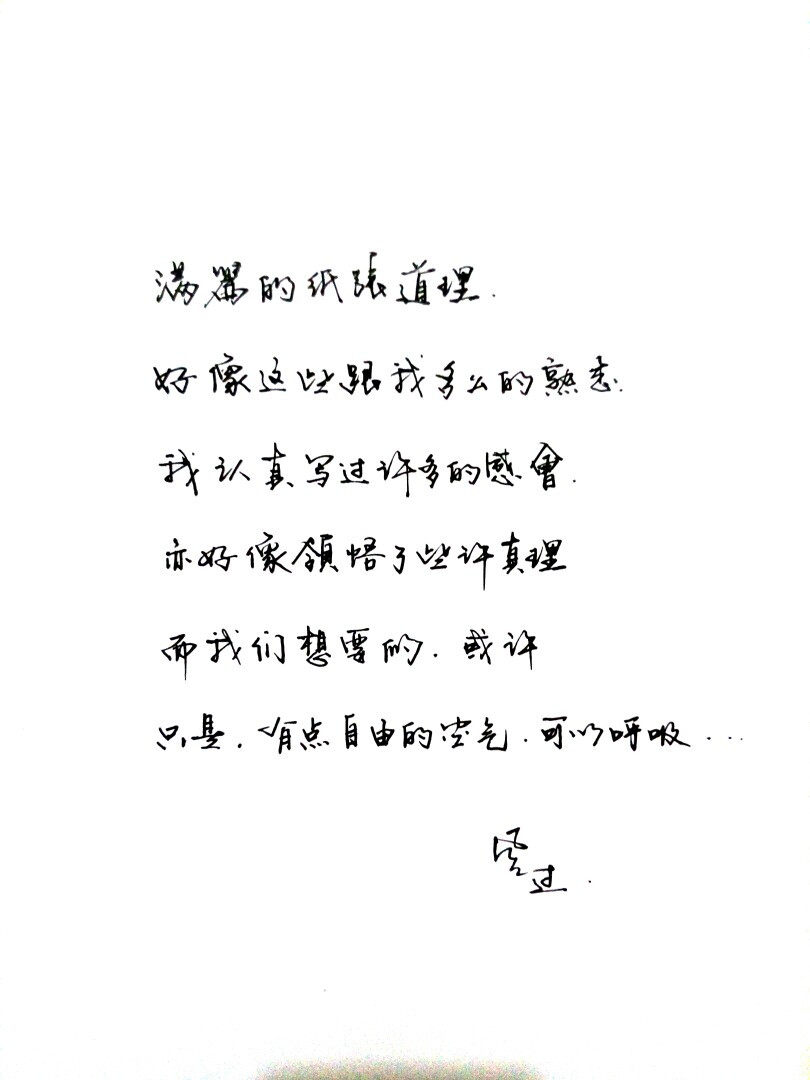 满嚣的纸張道理.
好像这些跟我多么的熟悉.
我认真写过许多的感會.
亦好像領悟了些许真理
而我们想要的.或许
只是.有点自由的空气.可以呼吸...
风过.